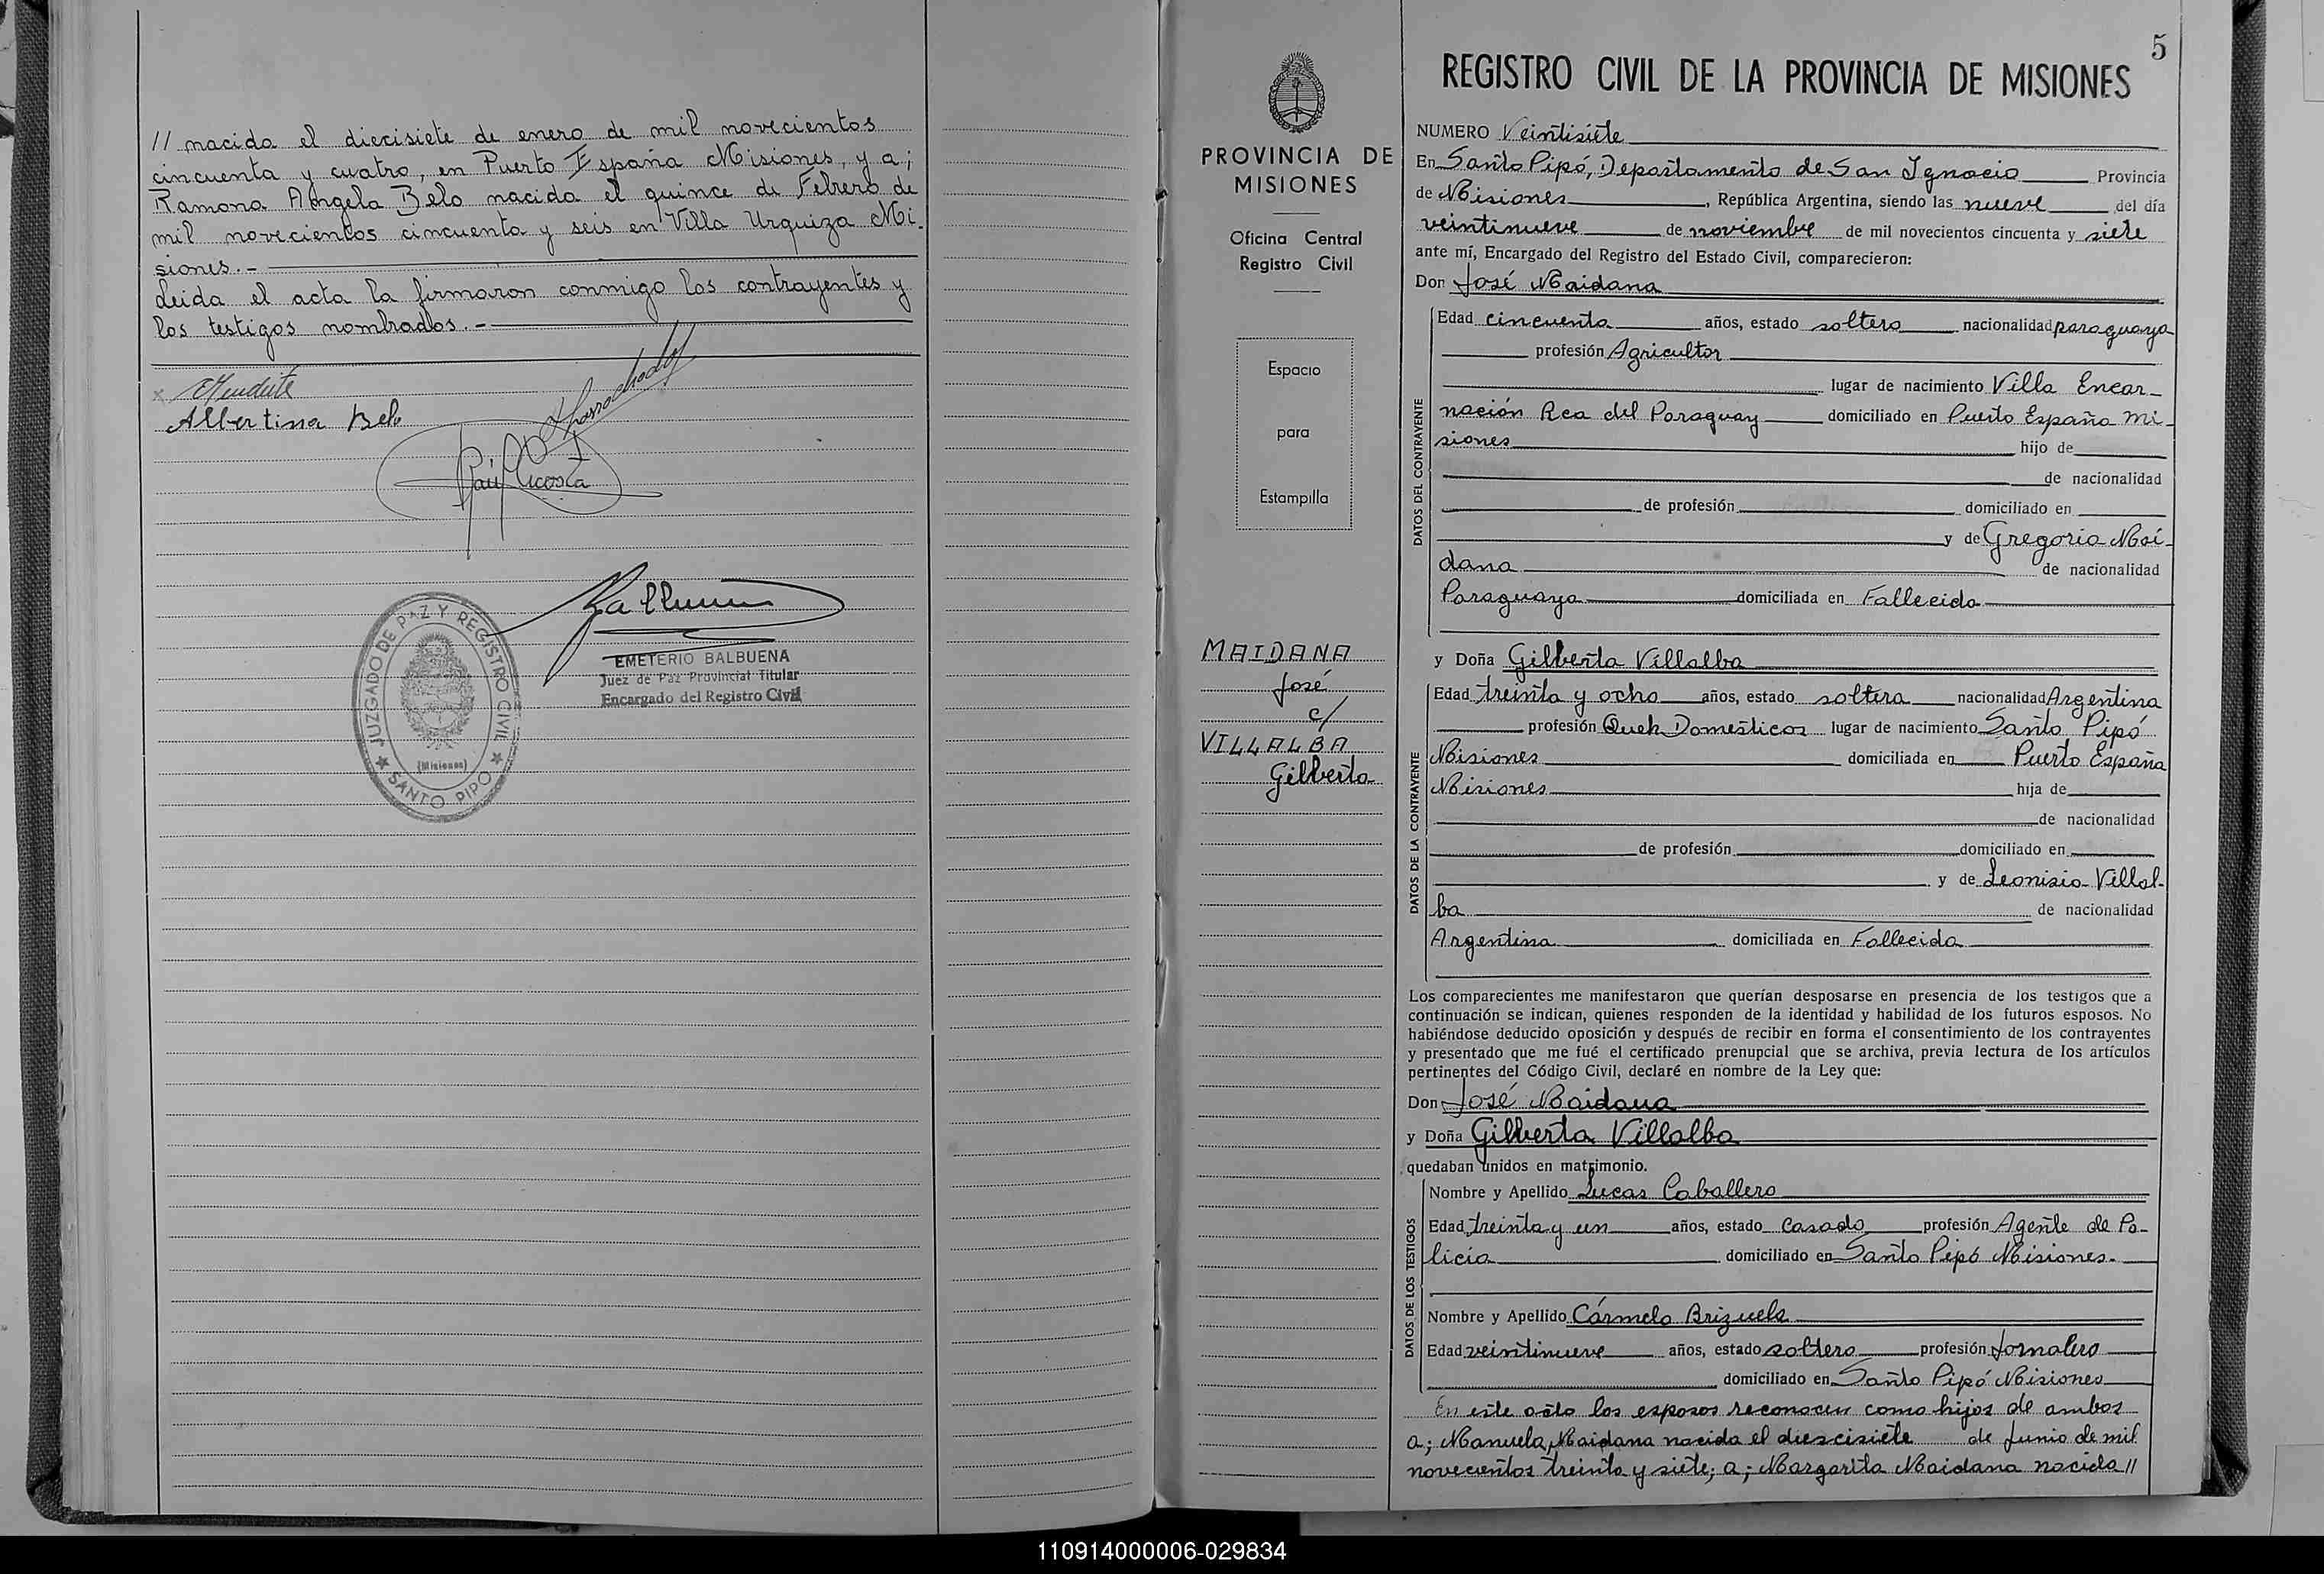 // nacida el diecisiete de enero de mil novecientos
cincuenta y cuatro, en Puerto España Misiones, y a;
Ramona Angela Belo nacida el quince de Febrero de
mil novecientos cincuenta y seis en Villa Urquiza Mi-
siones.-
Leida el acta la firmaron conmigo los contrayentes y
los testigos nombrados.-
Albertina Belo
Raúl Acosta
JUZGADO DE PAZ Y REGISTRO CIVIL
(Misiones)
SANTO PIPO
EMETERIO BALBUENA
Juez de Paz Provincial Titular
Encargado del Registro Civil
PROVINCIA DE
MISIONES
Oficina Central
Registro Civil
Espacio
para
Estampilla
MAIDANA
José
c/
VILLALBA
Gilberta
5
REGISTRO CIVIL DE LA PROVINCIA DE MISIONES
NUMERO Veintisiete
En Santo Pipó, Departamento de San Ignacio Provincia
de Misiones, República Argentina, siendo las nueve del día
veintinueve de noviembre de mil novecientos cincuenta y siete
ante mí, Encargado del Registro del Estado Civil, comparecieron:
Don José Maidana
DATOS DEL CONTRAYENTE
Edad cincuenta años, estado soltero nacionalidad paraguaya
profesión Agricultor
lugar de nacimiento Villa Encar-
nación Rca del Paraguay domiciliado en Puerto España Mi-
siones hijo de
de nacionalidad
de profesión domiciliado en
y de Gregoria Mai-
dana de nacionalidad
Paraguaya domiciliada en Fallecida
y Doña Gilberta Villalba
DATOS DE LA CONTRAYENTE
Edad treinta y ocho años, estado soltera nacionalidad Argentina
profesión Queh. Domesticos lugar de nacimiento Santo Pipó
Misiones domiciliada en Puerto España
Misiones hija de
de nacionalidad
de profesión domiciliado en
y de Leonisia Villal-
ba de nacionalidad
Argentina domiciliada en Fallecida
Los comparecientes me manifestaron que querían desposarse en presencia de los testigos que a
continuación se indican, quienes responden de la identidad y habilidad de los futuros esposos. No
habiéndose deducido oposición y después de recibir en forma el consentimiento de los contrayentes
y presentado que me fué el certificado prenupcial que se archiva, previa lectura de los artículos
pertinentes del Código Civil, declaré en nombre de la Ley que:
Don José Maidana
y Doña Gilberta Villalba
quedaban unidos en matrimonio.
DATOS DE LOS TESTIGOS
Nombre y Apellido Lucas Caballero
Edad treinta y un años, estado casado profesión Agente de Po-
licía domiciliado en Santo Pipó Misiones.
Nombre y Apellido Cármelo Brizuela
Edad veintinueve años, estado soltero profesión Jornalero
domiciliado en Santo Pipó Misiones
En este acto los esposos reconocen como hijos de ambos
a; Manuela Maidana nacida el diescisiete de Junio de mil
novecientos treinta y siete; a; Margarita Maidana nacida //
110914000006-029834